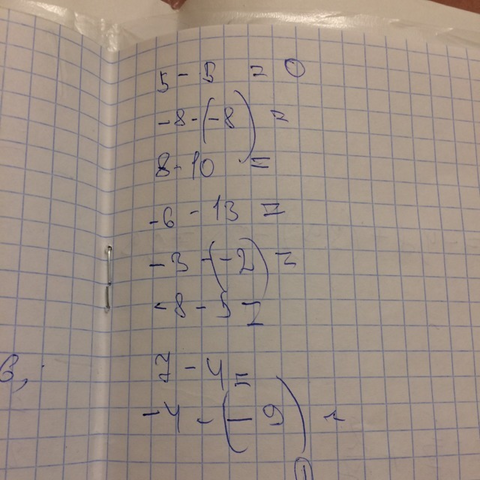 5 - 5 = 0
-8 - (-8) =
8 - 10 =
-6 - 13 =
-3 - (-2) =
-8 - 5 =
7 - 4 =
-4 - (-9) =